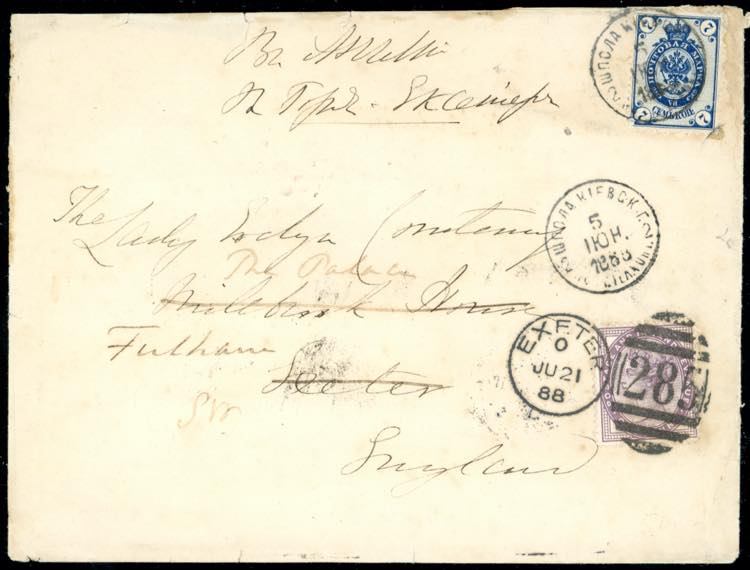 Въ Англію
въ Городъ Ексетеръ
7 7
ПОЧТОВАЯ МАРКА
СЕМЬ КОП.
7 7
ШПОЛА КІЕВСК. Г.
5
ІЮН.
1888
The
Lady Evelyn Courtenay
The Palace
Millbrook House
Fulham
Exeter
SW
England
EXETER
O
JU 21
88
285